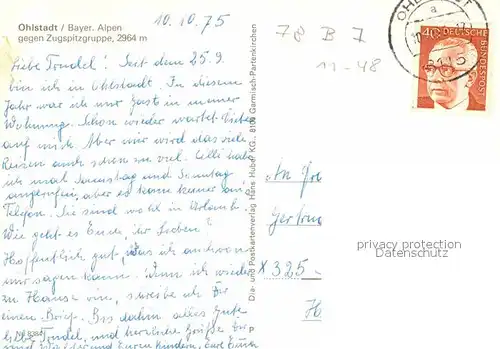 Ohlstadt / Bayer. Alpen
gegen Zugspitzgruppe, 2964 m
10.10.75
Liebe Trudel! Seit dem 25.9.
bin ich in Ohlstadt. In diesem
Jahr war ich nur Gast in meiner
Wohnung. Schon wieder wartet
auf mich. Aber mir wird das viele
Reisen auch schon zu viel. Cilli habe
ich mal Samstag und Sonntag
angerufen, aber es kam keiner an
Telefon. Sie sind wohl in Urlaub.
Wie geht es Euch, ihr Lieben?
Hoffentlich gut, was ich auch von
mir sagen kann. Wenn ich wieder
zu Hause bin, schreibe ich Dir
einen Brief. Bis dahin alles Gute
liebe Trudel, und herzliche Grüße
Nr. 8384
Dia- und Postkartenverlag Hans Huber KG., 8100 Garmisch-Partenkirchen
P
78 B 7
11-48
OHLSTADT
a
8115
40
DEUTSCHE
BUNDESPOST
An
Gertru
X 325
H
privacy protection
Datenschutz